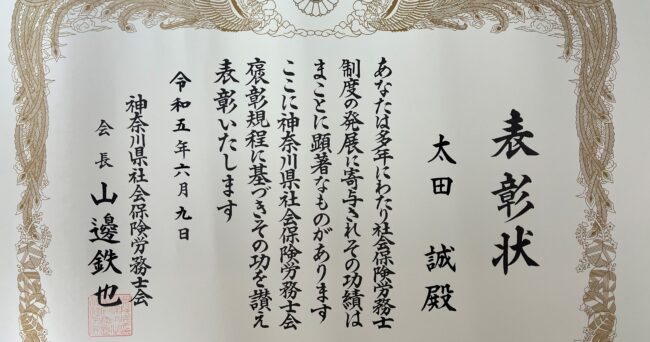 表彰状
太田 誠 殿
あなたは多年にわたり社会保険労務士
制度の発展に寄与されその功績は
まことに顕著なものがあります
ここに神奈川県社会保険労務士会
褒彰規程に基づきその功を讃え
表彰いたします
令和五年六月九日
神奈川県社会保険労務士会
会長 山邊鉄也